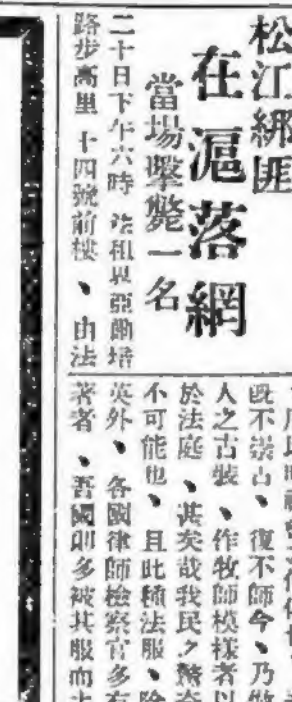 松江綁匪
在滬落網
當場擊斃一名
二十日下午六時、法租界亞爾培
路步高里十四號前樓、由法
既不崇古、復不師今、乃倣
人之古裝、作牧師模樣者以
於法庭、甚矣哉我民之
不可能也、且此種法服、除
英外、各國律師檢察官多有
著者、吾國則多被其服而